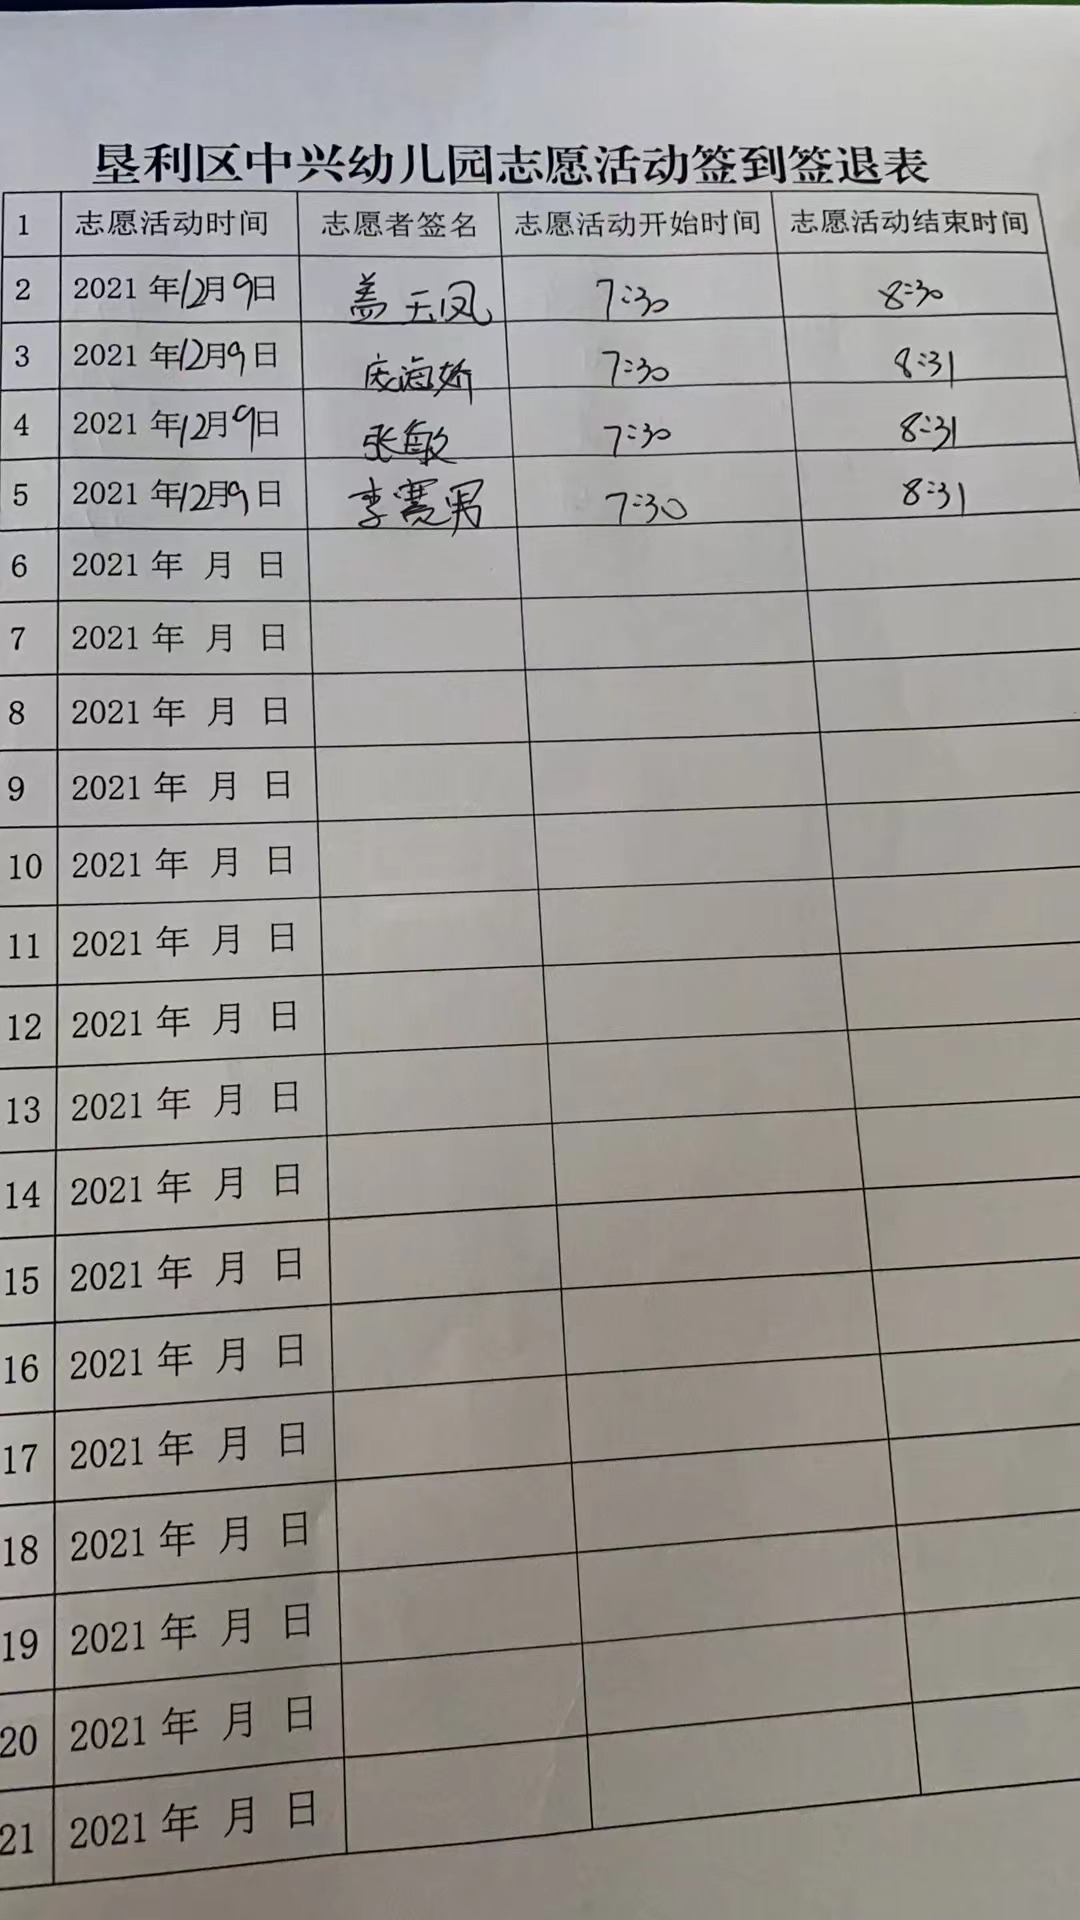 垦利区中兴幼儿园志愿活动签到签退表
1 志愿活动时间 志愿者签名 志愿活动开始时间 志愿活动结束时间
2 2021年12月9日 盖玉凤 7:30 8:30
3 2021年12月9日 海娇 7:30 8:31
4 2021年12月9日 张敏 7:30 8:31
5 2021年12月9日 李 男 7:30 8:31
6 2021年 月 日
7 2021年 月 日
8 2021年 月 日
9 2021年 月 日
10 2021年 月 日
11 2021年 月 日
12 2021年 月 日
13 2021年 月 日
14 2021年 月 日
15 2021年 月 日
16 2021年 月 日
17 2021年 月 日
18 2021年 月 日
19 2021年 月 日
20 2021年 月 日
21 2021年 月 日